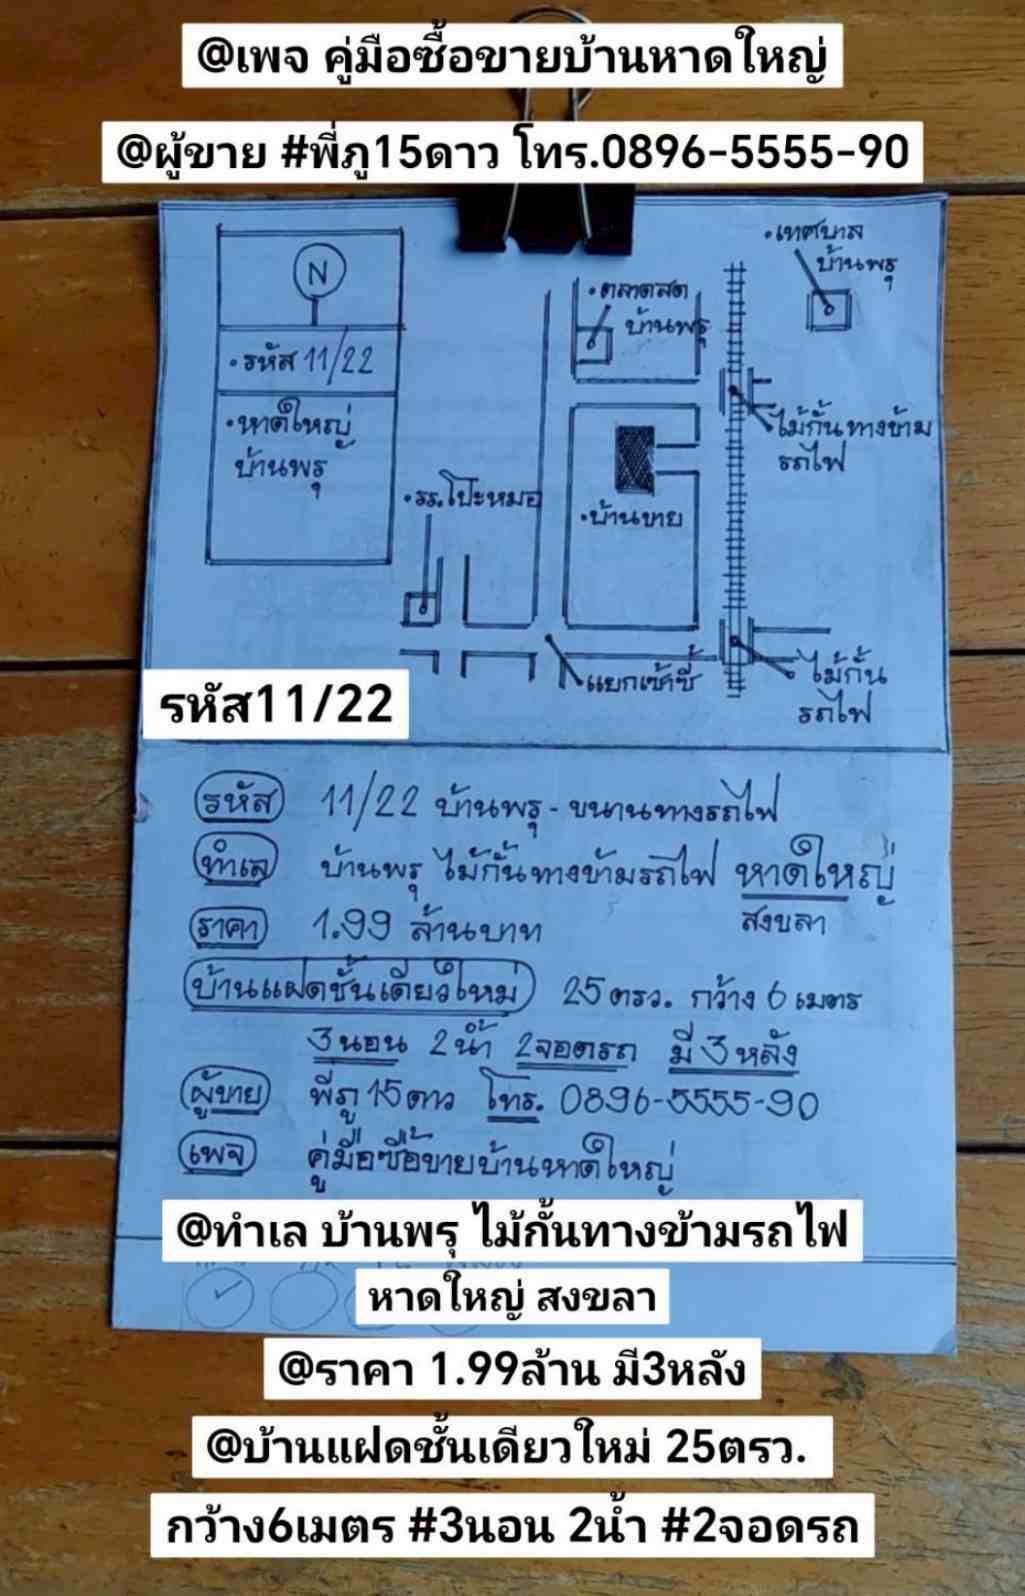 @เพจ คู่มือซื้อขายบ้านหาดใหญ่
@ผู้ขาย #พี่ภู15ดาว โทร.0896-5555-90
N
•รหัส 11/22
•หาดใหญ่
บ้านพรุ
•เทศบาล
บ้านพรุ
•ตลาดสด
บ้านพรุ
•ไม้กั้นทางข้าม
รถไฟ
•รร.โป๊ะหมอ
•บ้านขาย
•แยกเซ้าซี้
•ไม้กั้น
รถไฟ
รหัส11/22
รหัส 11/22 บ้านพรุ - ขนานทางรถไฟ
ทำเล บ้านพรุ ไม้กั้นทางข้ามรถไฟ หาดใหญ่
สงขลา
ราคา 1.99 ล้านบาท
บ้านแฝดชั้นเดียวใหม่ 25 ตรว. กว้าง 6 เมตร
3 นอน 2 น้ำ 2 จอดรถ มี 3 หลัง
ผู้ขาย พี่ภู 15 ดาว โทร. 0896-5555-90
เพจ คู่มือซื้อขายบ้านหาดใหญ่
@ทำเล บ้านพรุ ไม้กั้นทางข้ามรถไฟ
หาดใหญ่ สงขลา
@ราคา 1.99ล้าน มี3หลัง
@บ้านแฝดชั้นเดียวใหม่ 25ตรว.
กว้าง6เมตร #3นอน 2น้ำ #2จอดรถ